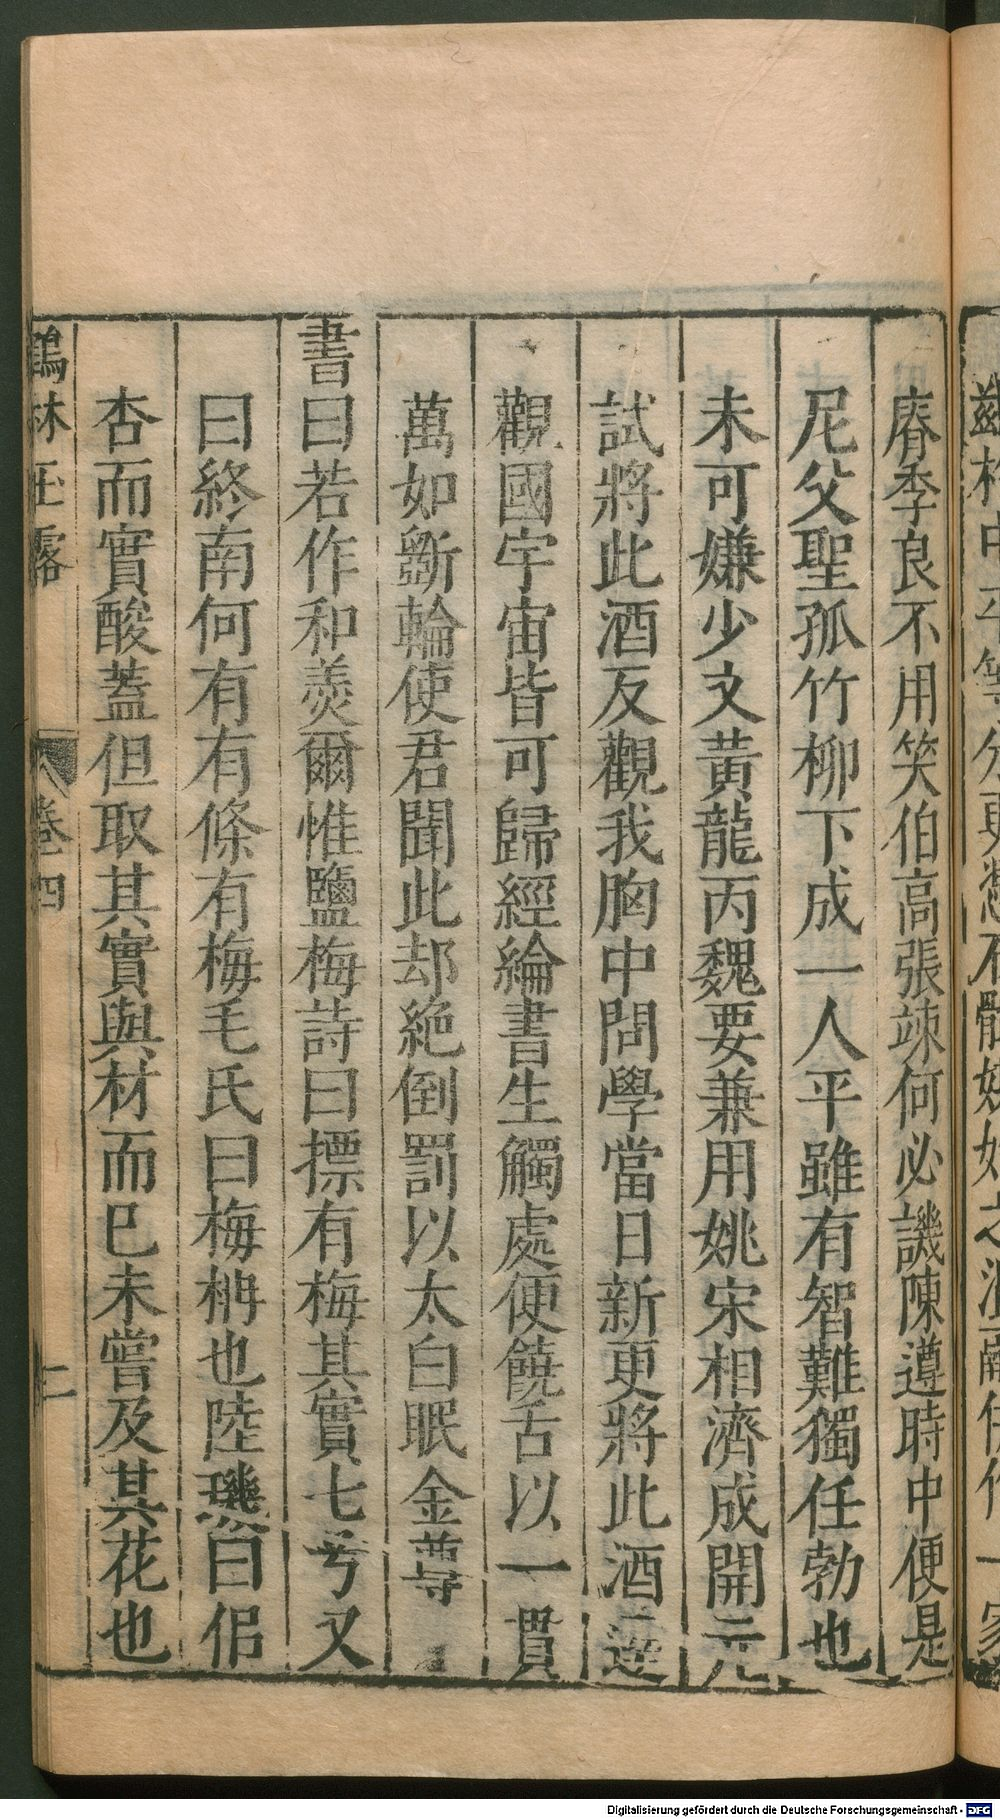 脊季良不用笑伯高張竦何必譏陳遵時中便是
尼父聖孤竹柳下成一人平雖有智難獨任勃也
未可嫌少文黃龍丙魏要兼用姚宋相濟成開元
試將此酒反觀我胸中問學當日新更將此酒還
觀國宇宙皆可歸經綸書生觸處便饒舌以一貫
萬如斵輪使君聞此却絶倒罰以太白眠金尊
書曰若作和羹爾惟鹽梅詩曰摽有梅其實七兮又
曰終南何有有條有梅毛氏曰梅枏也陸璣曰似
杏而實酸蓋但取其實與材而已未嘗及其花也
鶴林玉露 卷四 二
Digitalisierung gefördert durch die Deutsche Forschungsgemeinschaft - DFG